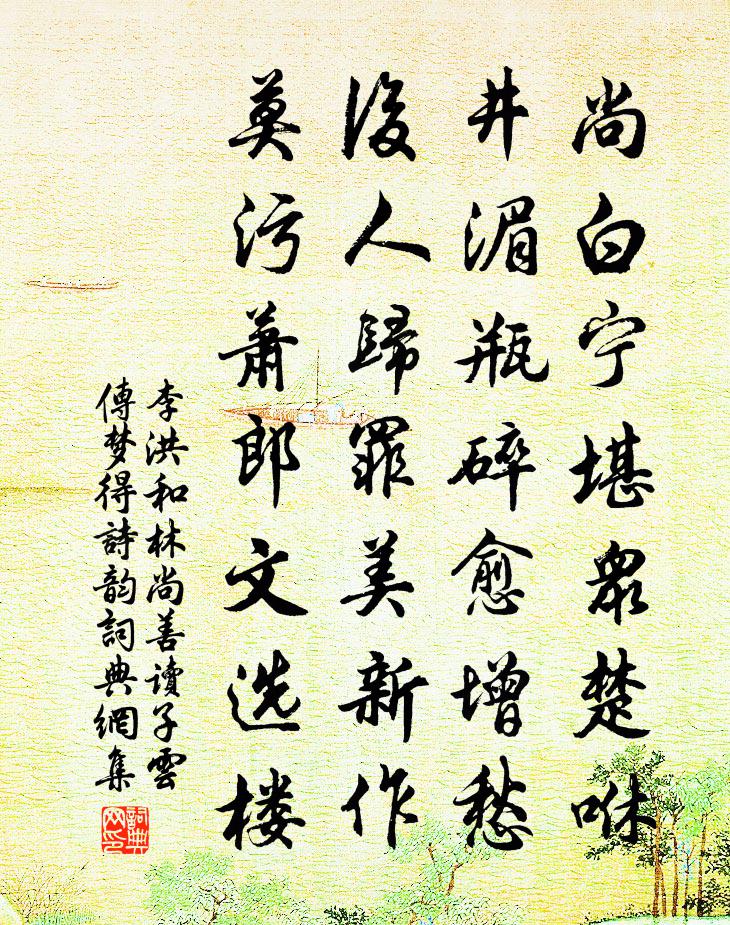 尚白宁堪众楚咻
井湄瓶碎愈增愁
後人歸罪美新作
莫污萧郎文选楼
李洪和林尚善讀子雲
傳梦得詩韵詞典網集
詞典網印